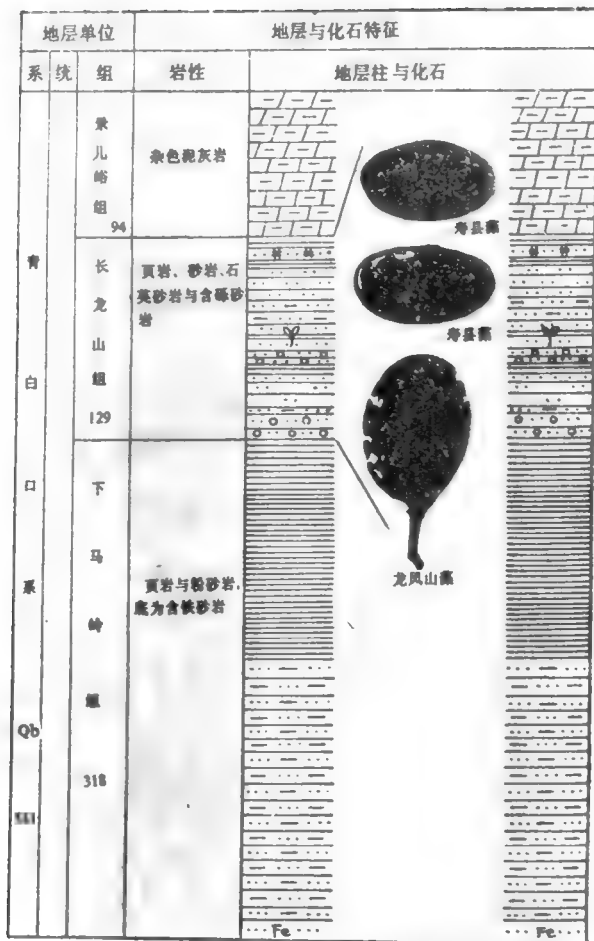 地层单位
地层与化石特征
系
统
组
岩性
地层柱与化石
青白口系
Qb
景儿峪组
94
杂色泥灰岩
寿县藻
长龙山组
129
页岩、砂岩、石
英砂岩与含砾砂
岩
寿县藻
龙凤山藻
下马岭组
318
页岩与粉砂岩,
底为含铁砂岩
Fe
Fe